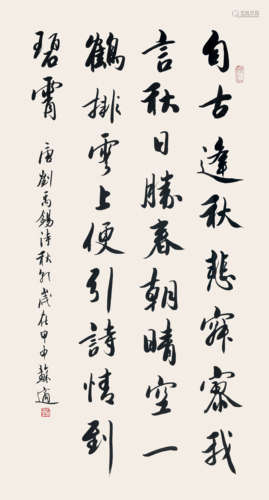 自古逢秋悲寂寥我
言秋日勝春朝晴空一
鶴排雲上便引詩情到
碧霄
唐劉禹錫詩秋詞歲在甲申蘇適